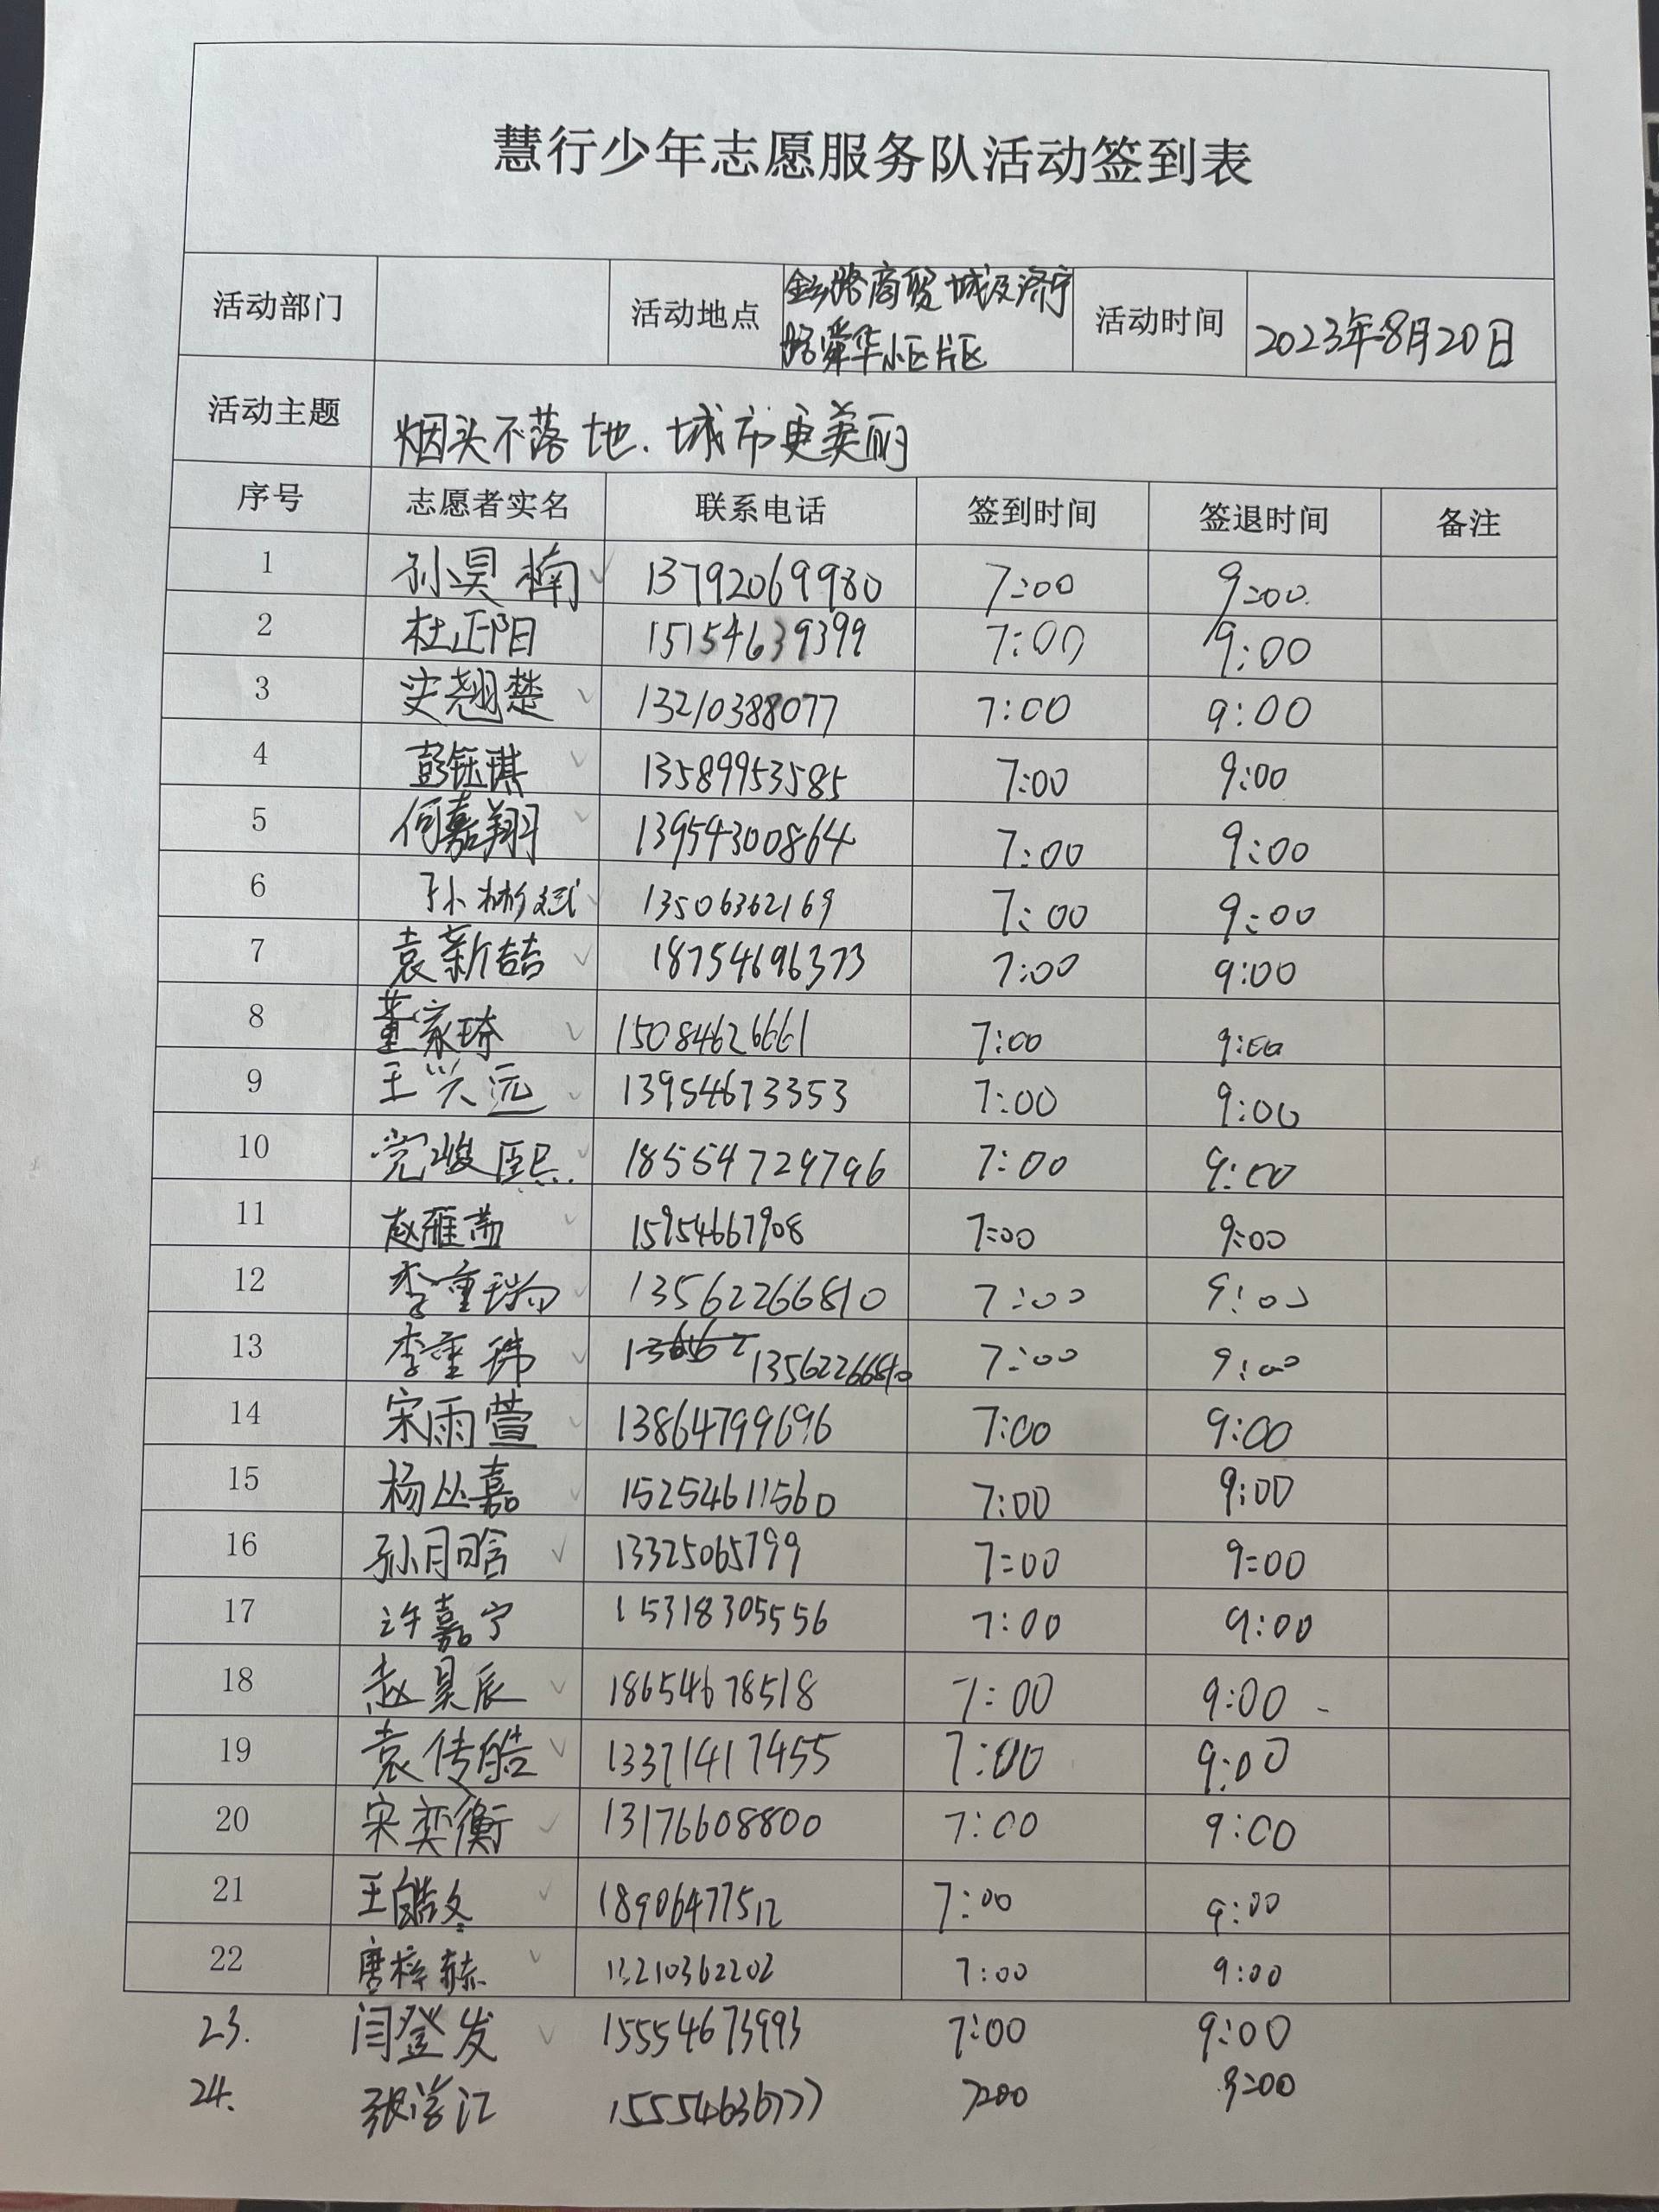 慧行少年志愿服务队活动签到表
活动部门 活动地点 金路商贸城及济宁路舜华小区片区 活动时间 2023年8月20日
活动主题 烟头不落地.城市更美丽
序号 志愿者实名 联系电话 签到时间 签退时间 备注
1 孙昊楠 13792069980 7:00 9:00
2 杜正阳 15154639399 7:00 9:00
3 史翘楚 13210388077 7:00 9:00
4 彭钰琪 13589953585 7:00 9:00
5 何嘉翔 13954300864 7:00 9:00
6 孙彬斌 13506362169 7:00 9:00
7 袁新喆 18754696373 7:00 9:00
8 董家琦 15084626661 7:00 9:00
9 王兴远 13954673353 7:00 9:00
10 党峻熙 18554729796 7:00 9:00
11 赵雁茹 15954667908 7:00 9:00
12 李重瑞 13562266810 7:00 9:00
13 李重玮 13562266810 7:00 9:00
14 宋雨萱 13864799696 7:00 9:00
15 杨丛嘉 15254611560 7:00 9:00
16 孙月晗 13325065799 7:00 9:00
17 许嘉宁 15318305556 7:00 9:00
18 赵昊辰 18654678518 7:00 9:00
19 袁传皓 13371417455 7:00 9:00
20 宋奕衡 13176608800 7:00 9:00
21 王皓冬 18906477512 7:00 9:00
22 唐梓赫 13210362202 7:00 9:00
23. 闫登发 15554673993 7:00 9:00
24. 张学江 15554636777 7:00 9:00